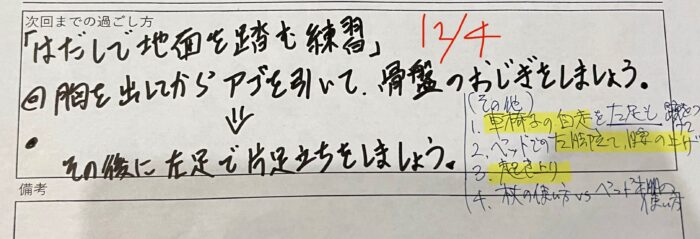 次回までの過ごし方
12/4
「はだしで地面を踏む練習」
胸を出してからアゴを引いて、骨盤のおじぎをしましょう。
⇓
・その後に左足で片足立ちをしましょう。
(その他)
1. 車椅子の自走を左足も
2. ベッドでの左膝立て、腰の上げ
3. 起き上り
4. 杖の使い方 vs ベッド柵の使い方
備考